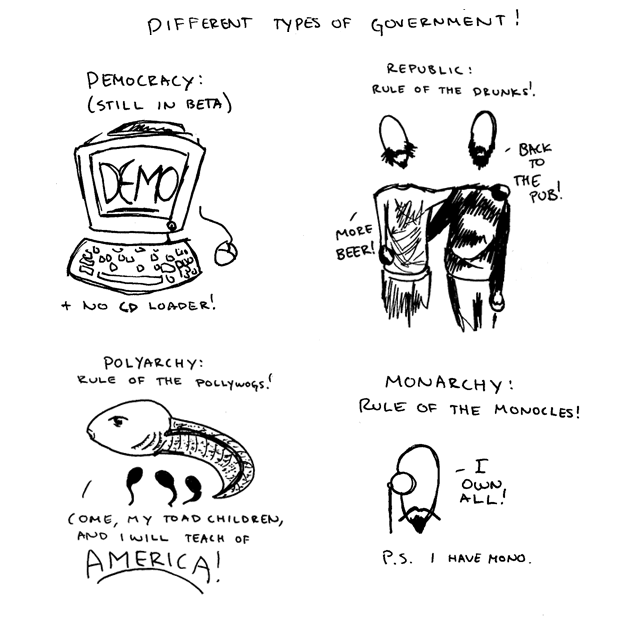 DIFFERENT TYPES OF GOVERNMENT!
DEMOCRACY:
(STILL IN BETA)
DEMO
+ NO CD LOADER!
REPUBLIC:
RULE OF THE DRUNKS!
BACK
TO
THE
PUB!
MORE
BEER!
POLYARCHY:
RULE OF THE POLLYWOGS!
COME, MY TOAD CHILDREN,
AND I WILL TEACH OF
AMERICA!
MONARCHY:
RULE OF THE MONOCLES!
I
OWN
ALL!
P.S. I HAVE MONO.